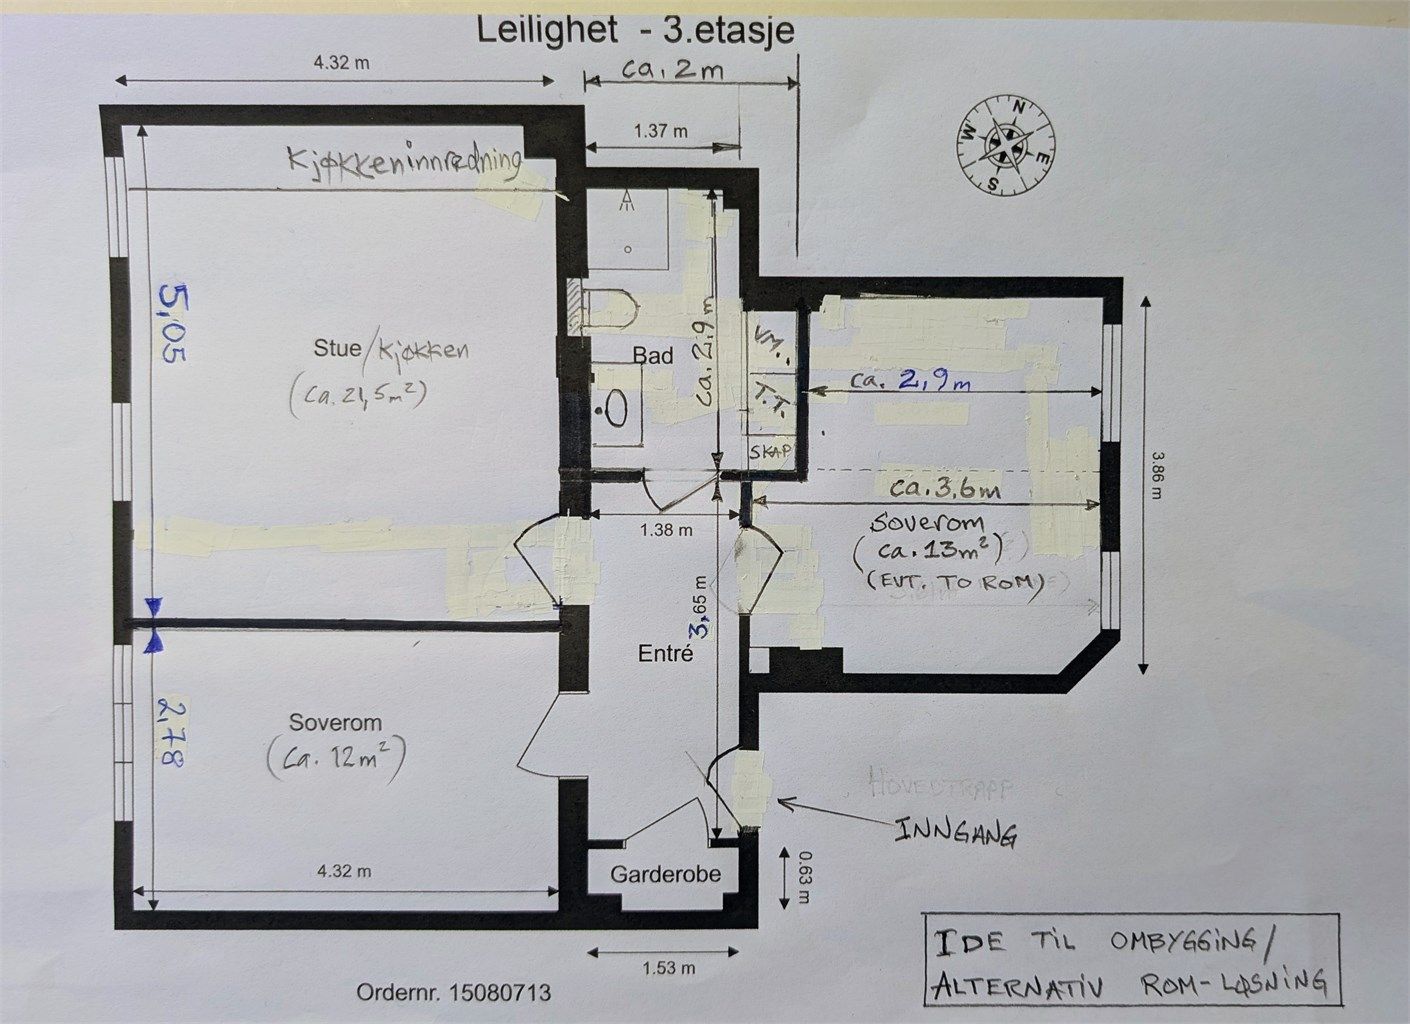 Leilighet - 3.etasje
4.32 m
ca. 2m
1.37 m
N
W
E
S
Kjøkkeninnredning
5,05
Stue/Kjøkken
(ca. 21,5m²)
Bad
ca. 2,9m
VM.
T.T.
SKAP
ca. 2,9m
3.86 m
ca. 3,6m
1.38 m
Soverom
(ca. 13m²)
(EVT. TO ROM)
3,65 m
Entré
2,78
Soverom
(ca. 12m²)
HOVEDTRAPP
INNGANG
4.32 m
Garderobe
0.63 m
1.53 m
IDE TIL OMBYGGING/
ALTERNATIV ROM-LØSNING
Ordernr. 15080713